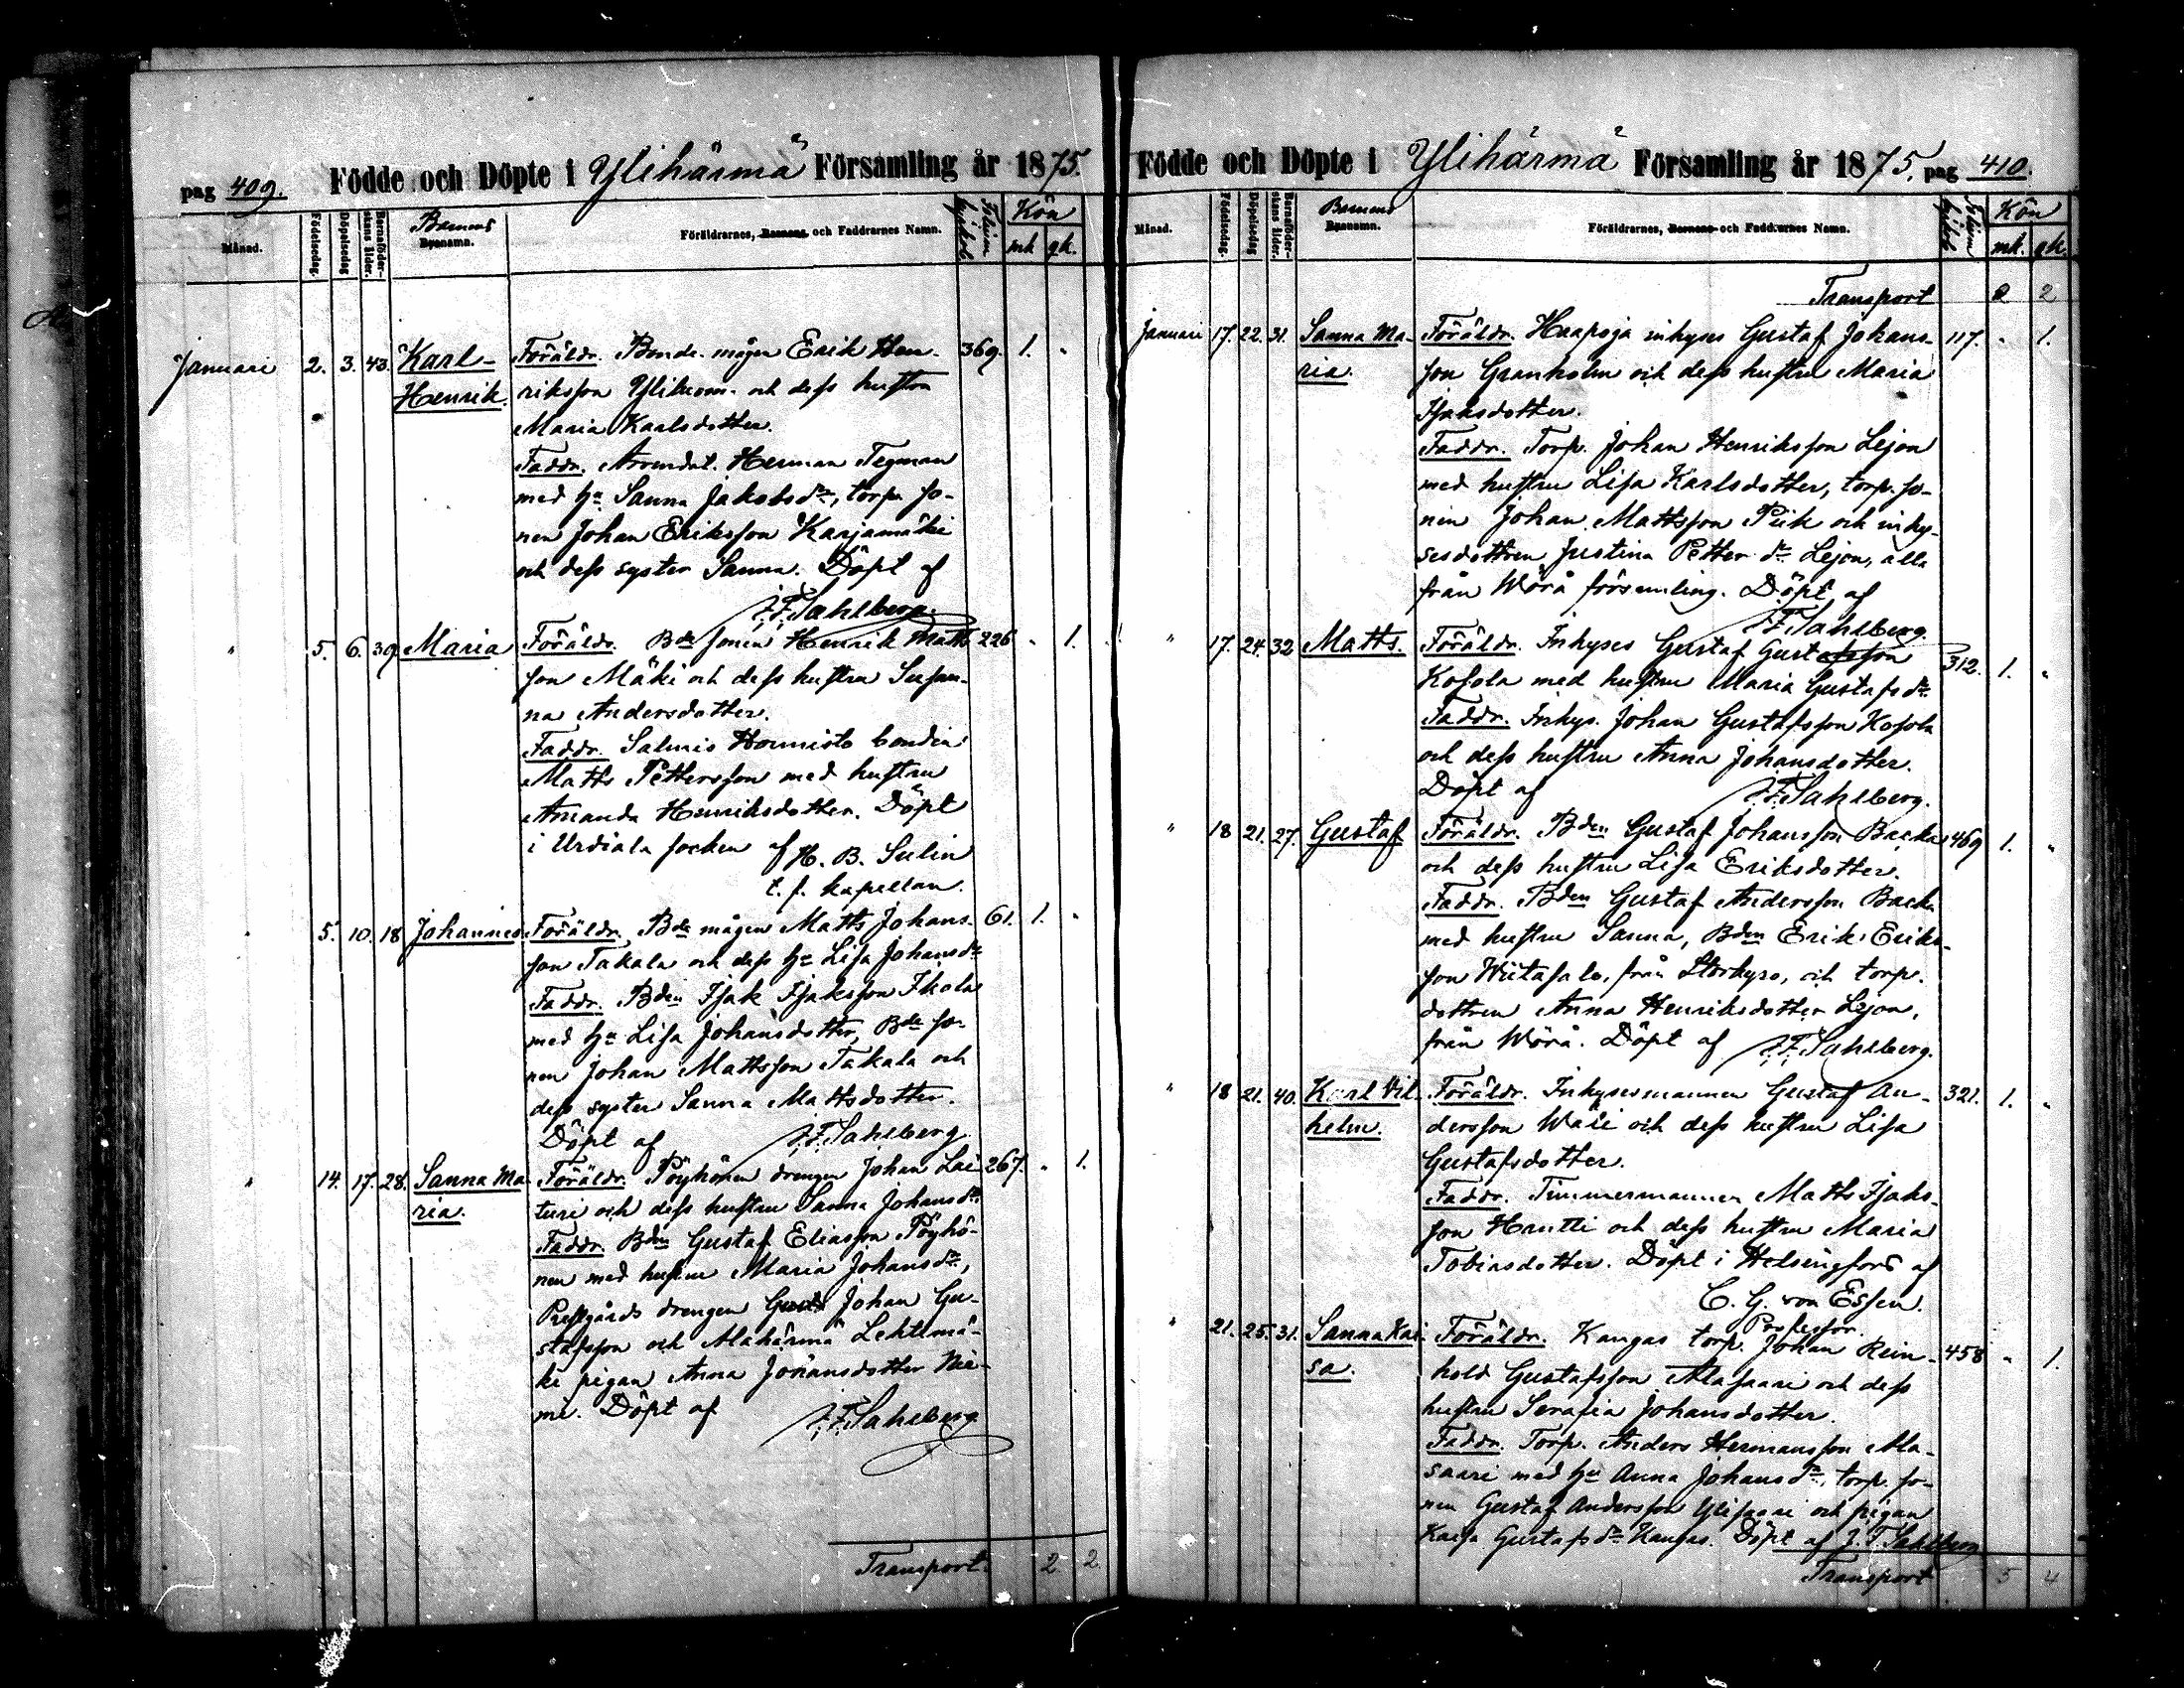 pag 409. Födde och Döpte i Ylihärmä Församling år 1875.
Månad. Födelsedag. Döpelsedag Barnaföderskans ålder. Barnens Byanamn. Föräldrarnes, Barnens och Faddrarnes Namn. Kön mk. qk.
Januari 2. 3. 43. Karl- Föräldr. Bonde-mågen Erik Hen- 369. 1. "
Henrik. riksson och dess hustru
Maria Karlsdotter.
Faddr. Arrendat. Herman Tegman
med h:u Sanna Jakobsd:r, torp. so-
nen Johan Eriksson Karjamäki
och dess syster Sanna. Döpt af
J. F. Sahlberg.
" 5. 6. 39. Maria Föräldr. Bde sonen Henrik Matts- 226 " 1.
son Mäki och dess hustru Susan-
na Andersdotter.
Faddr. Salmis Hannisto bonden
Matts Pettersson med hustru
Amanda Henriksdotter. Döpt
i Urdiala socken af H. B. Selin
t. f. kapellan.
" 5. 10. 18 Johannes Föräldr. Bde mågen Matts Johans- 61. 1. "
son Takala och dess h:u Lisa Johansd:r
Faddr. Bden Isak Isaksson Ikola
med h:u Lisa Johansdotter, Bde so-
nen Johan Mattsson Takala och
dess syster Sanna Mattsdotter.
Döpt af J. F. Sahlberg.
" 14. 17. 28. Sanna Ma- Föräldr. Pöyhönen drengen Johan Lai- 267. " 1.
ria. turi och dess hustru Sanna Johansd:r
Faddr. Bden Gustaf Eliasson Pöyhö-
nen med hustru Maria Johansd:r,
Prestgårds drengen Johan Gu-
stafsson och Alahärmä Lehtimä-
ki pigan Anna Johansdotter Nie-
mi. Döpt af J. F. Sahlberg
Transport. 2 2
Födde och Döpte i Ylihärmä Församling år 1875. pag 410.
Månad. Födelsedag. Döpelsedag Barnaföderskans ålder. Barnens Byanamn. Föräldrarnes, Barnens och Faddrarnes Namn. Kön mk. qk.
Transport 2 2
Januari 17. 22. 31. Sanna Ma- Föräldr. Haapoja inhyses Gustaf Johans- 117. " 1.
ria. son Granholm och dess hustru Maria
Isaksdotter.
Faddr. Torp. Johan Henriksson Lejon
med hustru Lisa Karlsdotter, torp. so-
nen Johan Mattsson Piik och inhy-
sesdottren Justina Petter d:r Lejon, alla
från Wörå församling. Döpt af
J. F. Sahlberg.
" 17. 24. 32 Matts. Föräldr. Inhyses Gustaf Gustafsson 312. 1. "
Kosola med hustru Maria Gustafsd:r
Faddr. Inhys. Johan Gustafsson Kosola
och dess hustru Anna Johansdotter.
Döpt af J. F. Sahlberg.
" 18 21. 27. Gustaf Föräldr. Bden Gustaf Johansson Backa 469 1. "
och dess hustru Lisa Eriksdotter.
Faddr. Bden Gustaf Andersson Backa
med hustru Sanna, Bden Erik Eriks-
son Wiitasalo, från Storkyro, och torp.
dottren Anna Henriksdotter Lejon,
från Wörå. Döpt af J. F. Sahlberg.
" 18 21. 40. Karl Vil- Föräldr. Inhysesmannen Gustaf An- 321. 1. "
helm. dersson Wäli och dess hustru Lisa
Gustafsdotter.
Faddr. Timmermannen Matts Isaks-
son Hautti och dess hustru Maria
Tobiasdotter. Döpt i Helsingfors af
C. G. von Essen.
Professor.
" 21. 25. 31. Sanna Kai- Föräldr. Kangas torp. Johan Rein- 458 " 1.
sa. hold Gustafsson Alasaari och dess
hustru Serafia Johansdotter.
Faddr. Torp. Anders Hermansson Ala-
saari med h:u Anna Johansd:r, torp. so-
nen Gustaf Andersson Ylisaari och pigan
Kaisa Gustafsd:r Kangas. Döpt af J. F. Sahlberg
Transport 5 4